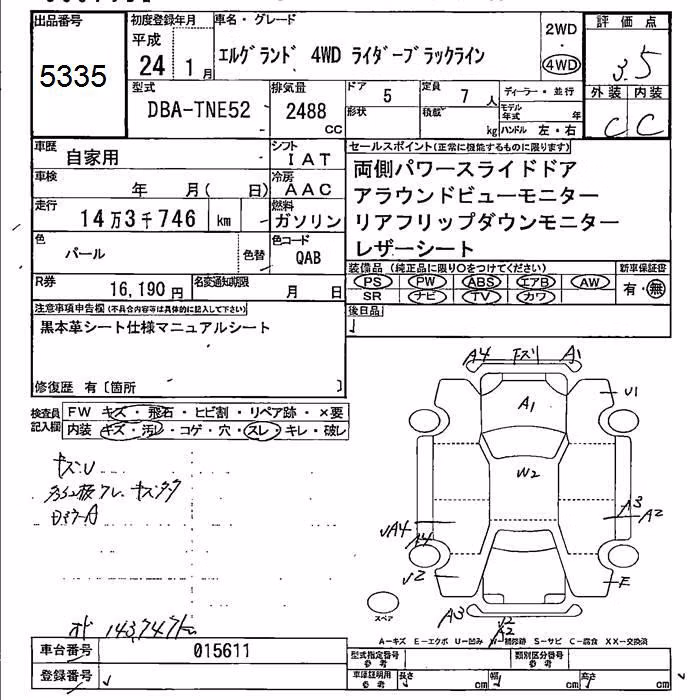 出品番号
5335
初度登録年月
平成
24 1月
車名・グレード
エルグランド 4WD ライダーブラックライン
2WD
・
4WD
評価点
3.5
外装 内装
C C
型式
DBA-TNE52
排気量
2488
cc
ドア
5
定員
7人
形状
積載
kg
ディーラー・並行
モデル年式 年
ハンドル 左・右
車歴
自家用
シフト
IAT
車検
年 月( 日)
冷房
AAC
走行
14万3千746 km
燃料
ガソリン
色
パール
色替
色コード
QAB
R券
16,190円
名変通知期限
月 日
セールスポイント(正常に機能するものに限ります)
両側パワースライドドア
アラウンドビューモニター
リアフリップダウンモニター
レザーシート
装備品 (純正品に限り○をつけてください)
PS PW ABS エアB AW
SR ナビ TV カワ
新車保証書
有・無
後日品
注意事項申告欄(不具合内容等は具体的に記入して下さい)
黒本革シート仕様マニュアルシート
修復歴 有〔箇所 〕
検査員記入欄
FW キズ・飛石・ヒビ割・リペア跡・×要
内装 キズ・汚レ・コゲ・穴・スレ・キレ・破レ
キズU
A4 キズ A1
A1
U1
W2
A3
A2
A4
E
A3
スペア
143,747km
A−キズ E−エクボ U−凹み W−補修跡 S−サビ C−腐食 XX−交換済
車台番号
015611
登録番号
型式指定番号
参考
類別区分番号
参考
車庫証明用
参考
長さ cm
幅 cm
高さ cm